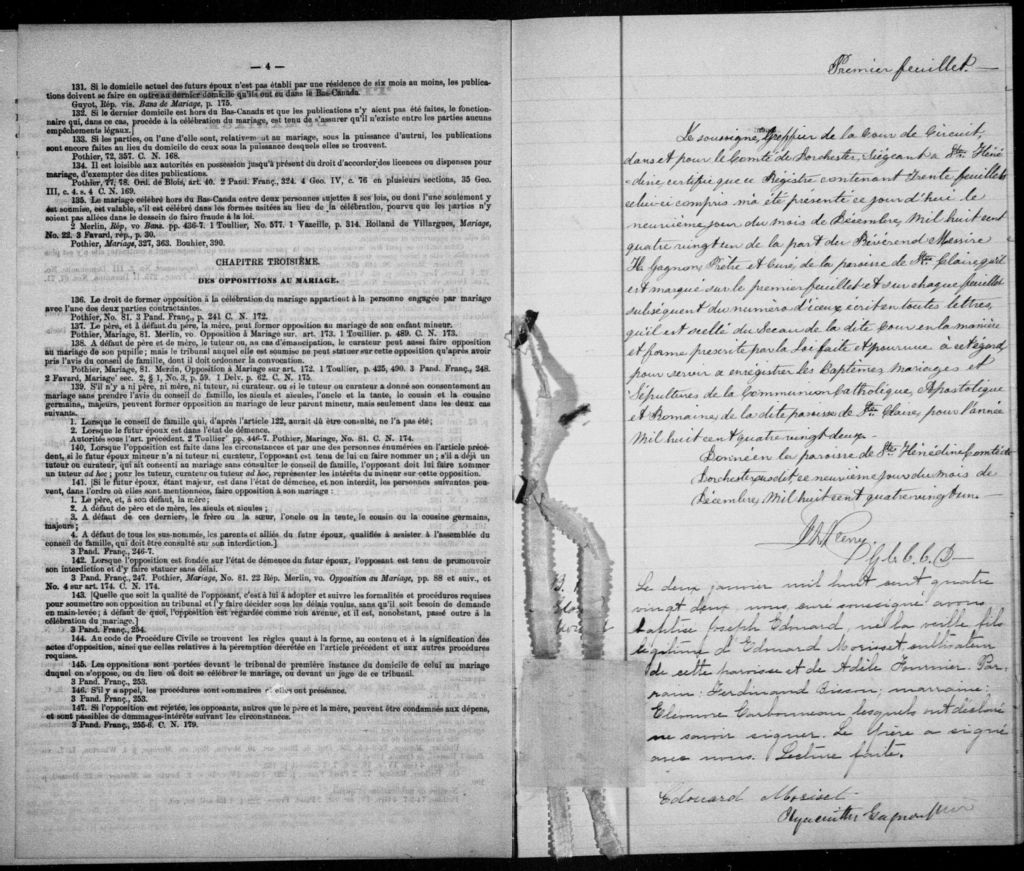 — 4 —
131. Si le domicile actuel des futurs époux n'est pas établi par une résidence de six mois au moins, les publica-
tions doivent se faire en outre au dernier domicile qu'ils ont eu dans le Bas-Canada.
Guyot, Rép. vis. Bans de Mariage, p. 175.
132. Si le dernier domicile est hors du Bas-Canada et que les publications n'y aient pas été faites, le fonction-
naire qui, dans ce cas, procède à la célébration du mariage, est tenu de s'assurer qu'il n'existe entre les parties aucuns
empêchements légaux.]
133. Si les parties, ou l'une d'elles sont, relativement au mariage, sous la puissance d'autrui, les publications
sont encore faites au lieu du domicile de ceux sous la puissance desquels elles se trouvent.
Pothier, 72, 357. C. N. 168.
134. Il est loisible aux autorités en possession jusqu'à présent du droit d'accorder des licences ou dispenses pour
mariage, d'exempter des dites publications.
Pothier, 77, 78. Ord. de Blois, art. 40. 2 Pand. Franç., 324. 4 Geo. IV, c. 76 en plusieurs sections, 35 Geo.
III, c. 4. s. 4 C. N. 169.
135. Le mariage célébré hors du Bas-Canada entre deux personnes sujettes à ses lois, ou dont l'une seulement y
est soumise, est valable, s'il est célébré dans les formes usitées au lieu de la célébration, pourvu que les parties n'y
soient pas allées dans le dessein de faire fraude à la loi.
2 Merlin, Rép, vo Bans. pp. 436-7. 1 Toullier, No. 577. 1 Vazeille, p. 314. Rolland de Villargues, Mariage,
No. 22. 3 Favard, rép., p. 30.
Pothier, Mariage, 327, 363. Bouhier, 390.
CHAPITRE TROISIÈME.
DES OPPOSITIONS AU MARIAGE.
136. Le droit de former opposition à la célébration du mariage appartient à la personne engagée par mariage
avec l'une des deux parties contractantes.
Pothier, No. 81. 3 Pand. Franç., p. 241 C. N. 172.
137. Le père, et à défaut du père, la mère, peut former opposition au mariage de son enfant mineur.
Pothier, Mariage, 81. Merlin, vo. Opposition à Mariage sur. art. 173. 1 Touillier p. 489. C. N. 173.
138. A défaut de père et de mère, le tuteur ou, au cas d'émancipation, le curateur peut aussi faire opposition
au mariage de son pupille; mais le tribunal auquel elle est soumise ne peut statuer sur cette opposition qu'après avoir
pris l'avis du conseil de famille, dont il doit ordonner la convocation.
Pothier, Mariage, 81. Merlin, Opposition à Mariage sur art. 172. 1 Toullier, p. 425, 490. 3 Pand. Franç., 248.
2 Favard, Mariage' sec. 2, § 1, No. 3, p. 59. 1 Delv. p. 62. C. N. 175.
139. S'il n'y a ni père, ni mère, ni tuteur, ni curateur, ou si le tuteur ou curateur a donné son consentement au
mariage sans prendre l'avis du conseil de famille, les aïeuls et aïeules, l'oncle et la tante, le cousin et la cousine
germains, majeurs, peuvent former opposition au mariage de leur parent mineur, mais seulement dans les deux cas
suivants.
1. Lorsque le conseil de famille qui, d'après l'article 122, aurait dû être consulté, ne l'a pas été;
2. Lorsque le futur époux est dans l'état de démence.
Autorités sous l'art. précédent. 2 Toullier' pp. 446-7. Pothier, Mariage, No. 81. C. N. 174.
140. Lorsque l'opposition est faite dans les circonstances et par une des personnes énumérées en l'article précé-
dent, si le futur époux mineur n'a ni tuteur ni curateur, l'opposant est tenu de lui en faire nommer un; s'il a déjà un
tuteur ou curateur, qui ait consenti au mariage sans consulter le conseil de famille, l'opposant doit lui faire nommer
un tuteur ad hoc; pour les tuteur, curateur ou tuteur ad hoc, représenter les intérêts du mineur sur cette opposition.
141. [Si le futur époux, étant majeur, est dans l'état de démence, et non interdit, les personnes suivantes peu-
vent, dans l'ordre où elles sont mentionnées, faire opposition à son mariage:
1. Le père, et, à son défaut, la mère;
2. A défaut de père et de mère, les aïeuls et aïeules;
3. A défaut de ces derniers, le frère ou la sœur, l'oncle ou la tente, le cousin ou la cousine germains,
majeurs;
4. A défaut de tous les sus-nommés, les parents et alliés du futur époux, qualifiés à assister à l'assemblée du
conseil de famille, qui doit être consulté sur son interdiction.]
3 Pand. Franç., 246-7.
142. Lorsque l'opposition est fondée sur l'état de démence du futur époux, l'opposant est tenu de promouvoir
son interdiction et d'y faire statuer sans délai.
3 Pand. Franç., 247. Pothier, Mariage, No. 81. 22 Rép. Merlin, vo. Opposition au Mariage, pp. 88 et suiv., et
No. 4 sur art. 174. C. N. 174.
143. [Quelle que soit la qualité de l'opposant, c'est à lui à adopter et suivre les formalités et procédures requises
pour soumettre son opposition au tribunal et l'y faire décider sous les délais voulus, sans qu'il soit besoin de demande
en main-levée; à défaut de quoi, l'opposition est regardée comme non avenue, et il est, nonobstant, passé outre à la
célébration du mariage.]
3 Pand. Franç., 254.
144. Au code de Procédure Civile se trouvent les règles quant à la forme, au contenu et à la signification des
actes d'opposition, ainsi que celles relatives à la péremption décrétée en l'article précédent et aux autres procédures
requises.
145. Les oppositions sont portées devant le tribunal de première instance du domicile de celui au mariage
duquel on s'oppose, ou du lieu où doit se célébrer le mariage, ou devant un juge de ce tribunal.
3 Pand. Franç., 253.
146. S'il y a appel, les procédures sont sommaires et elles ont préséance.
3 Pand. Franç., 253.
147. Si l'opposition est rejetée, les opposants, autres que le père et la mère, peuvent être condamnés aux dépens,
et sont passibles de dommages-intérêts suivant les circonstances.
3 Pand. Franç., 255-6. C. N. 179.
Premier feuillet.
Le soussigné, Greffier de la Cour de Circuit,
dans et pour le Comté de Dorchester, siégeant à Ste. Héné
-dine, certifie que ce Régistre contenant Trente feuillets
celui-ci compris m'a été présenté ce jour d'hui le
neuvième jour du mois de Décembre, Mil huit cent
quatre vingt un de la part du Révérend Messire
H. Gagnon, Prêtre et Curé, de la paroisse de Ste. Claire qu'il
est marqué sur le premier feuillet et sur chaque feuillet
subséquent du numéro d'iceux écrit en toutes lettres,
qu'il est scellé du Sceau de la dite Cour en la manière
et forme prescrite par la Loi faite et pourvue à cet égard
pour servir à enregistrer les Baptêmes, mariages et
Sépultures de la Communion Catholique, Apostolique
et Romaine, de la dite paroisse de Ste. Claire, pour l'année
Mil huit cent quatre vingt deux.
Donné en la paroisse de Ste. Hénédine, Comté de
Dorchester, susdit ce neuvième jour du mois de
Décembre, Mil huit cent quatre vingt un.
G. C. C. C. D
Le deux janvier mil huit cent quatre
vingt deux, nous, curé soussigné avons
baptisé Joseph Edmard, né la veille fils
légitime d'Edouard Morisset cultivateur
de cette paroisse et de Adèle Fournier. Par-
rain: Ferdinand Bisson; marraine:
Eléonore Carbonneau lesquels ont déclaré
ne savoir signer. Le Père a signé
avec nous. Lecture faite.
Edouard Morisset
Hyacinthe Gagnon, Ptre